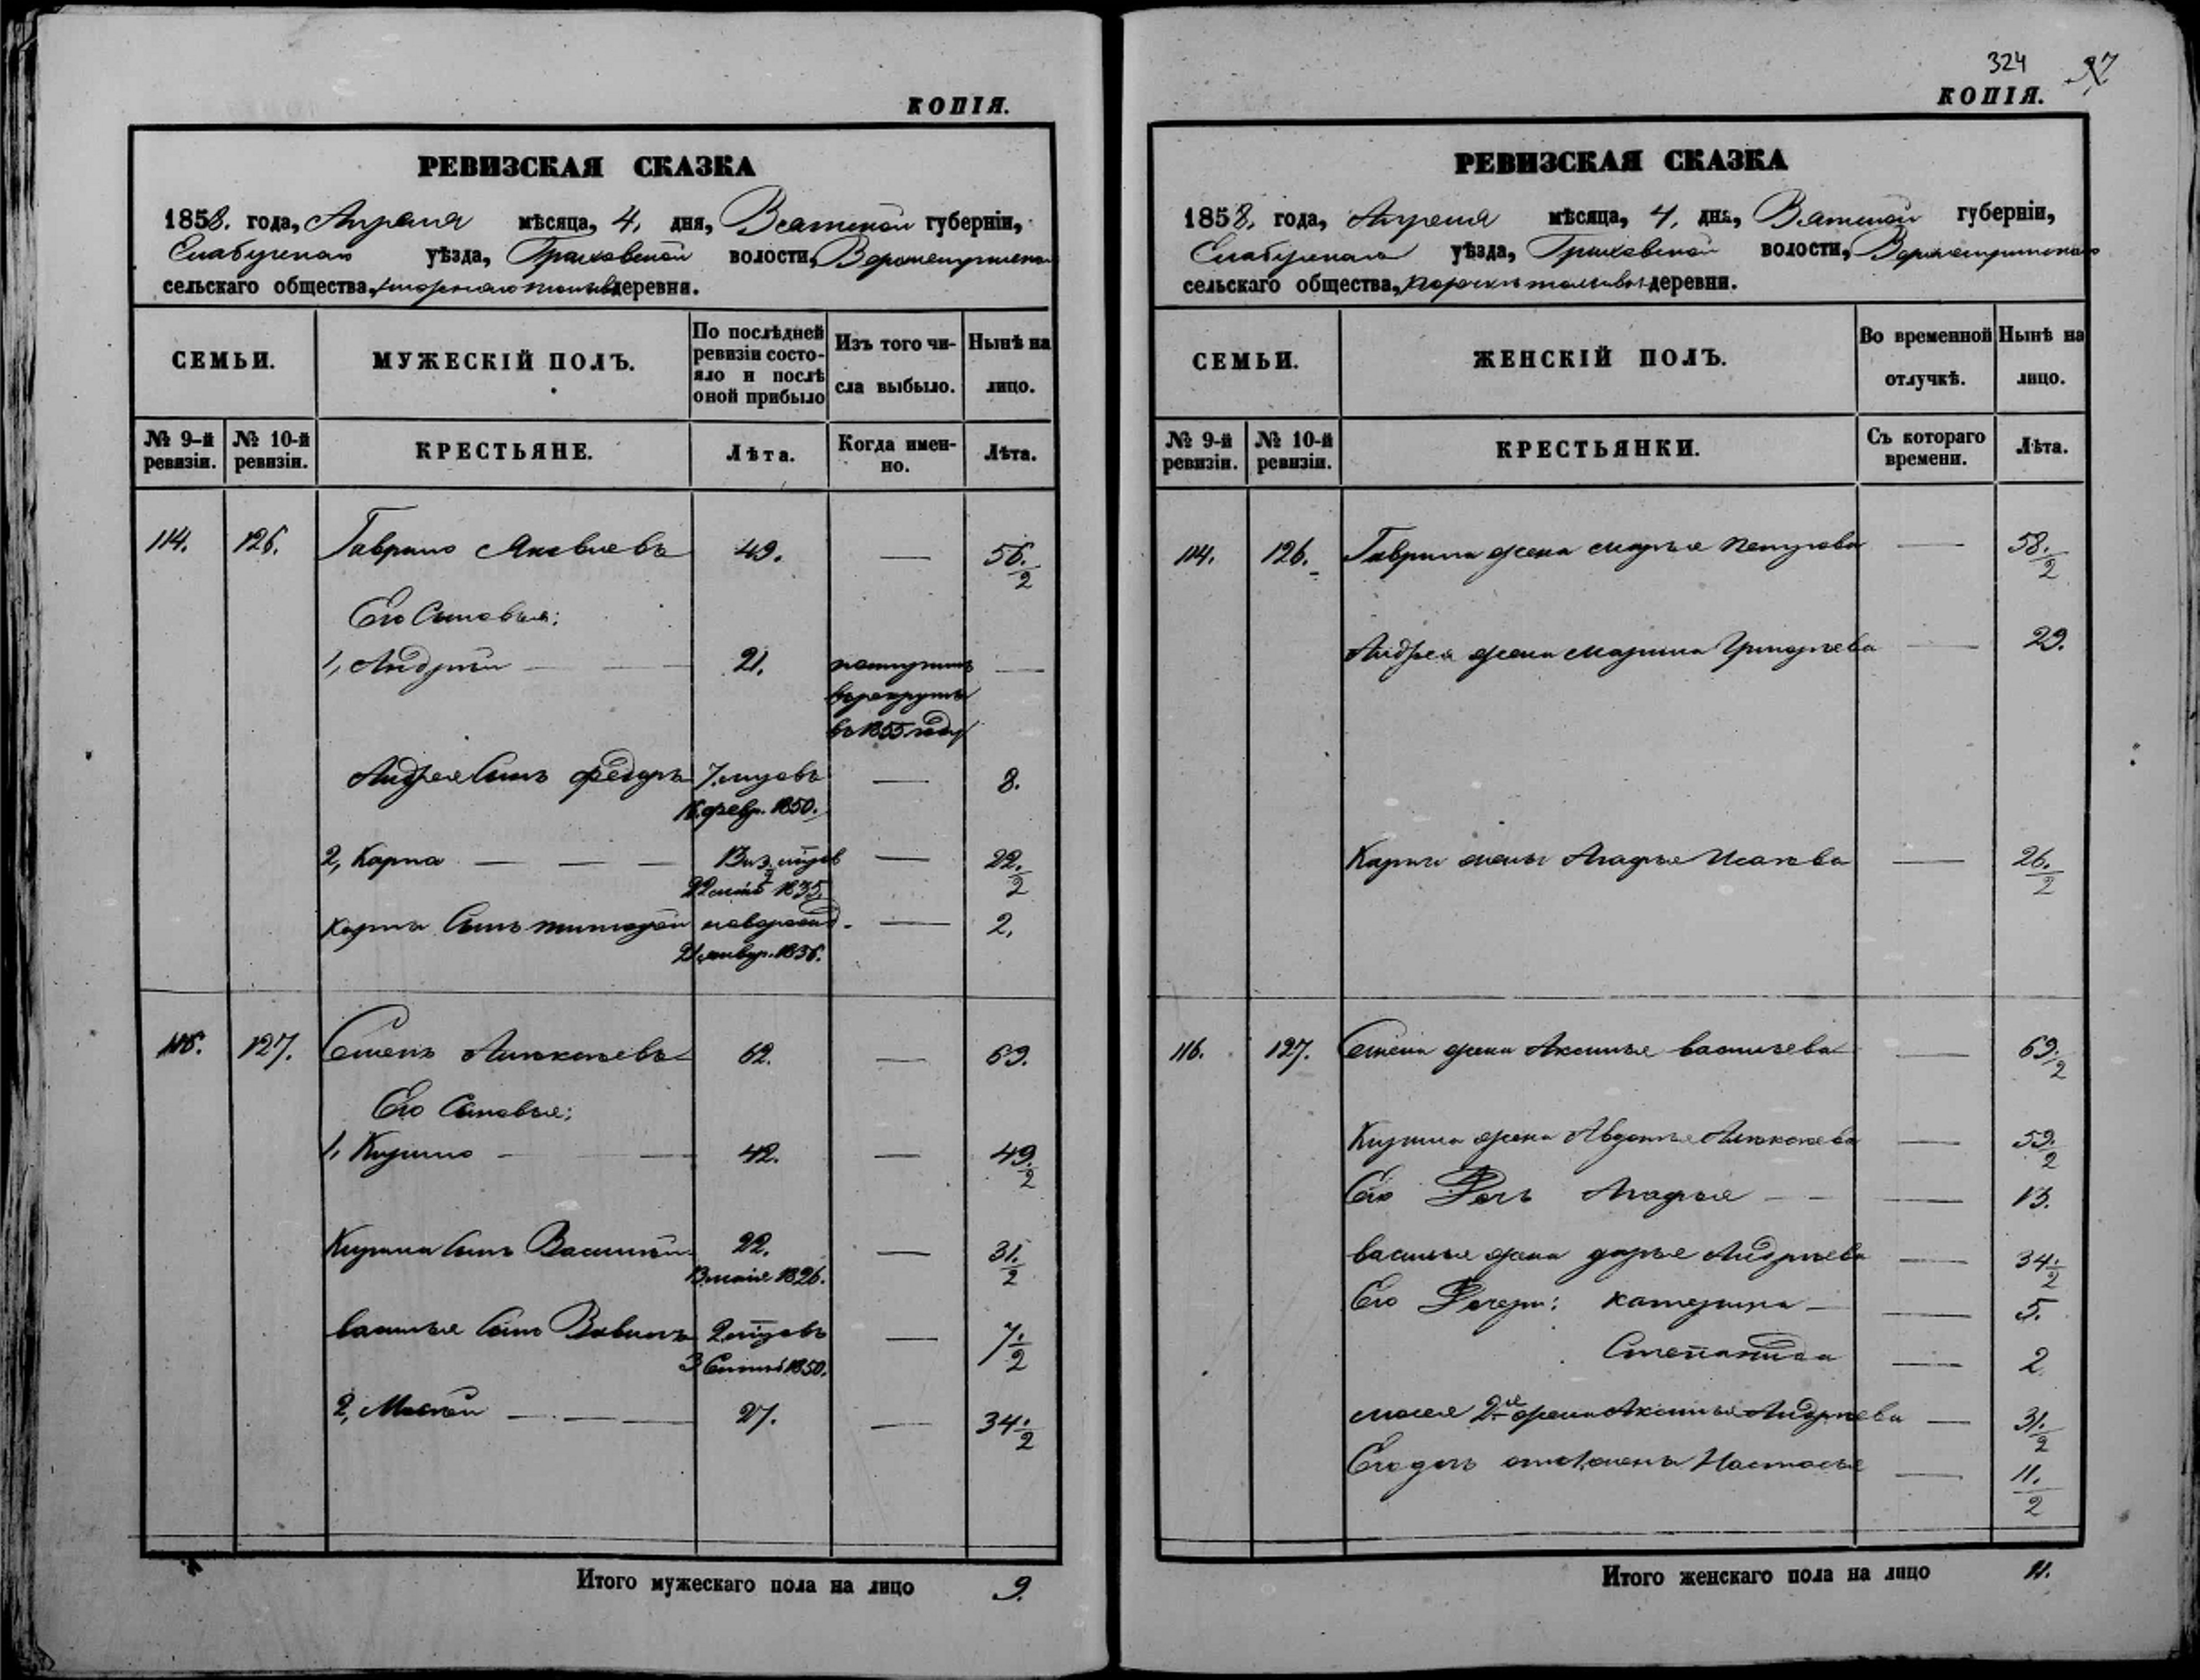 КОПІЯ.
РЕВИЗСКАЯ СКАЗКА
1858. года, Апреля мѣсяца, 4, дня, Вятской губерніи,
Елабугскаго уѣзда, Граховской волости,
сельскаго общества, деревни.
СЕМЬИ.
МУЖЕСКІЙ ПОЛЪ.
По послѣдней ревизіи состояло и послѣ оной прибыло
Изъ того числа выбыло.
Нынѣ на лицо.
№ 9-й ревизіи.
№ 10-й ревизіи.
КРЕСТЬЯНЕ.
Лѣта.
Когда именно.
Лѣта.
114. 126. Гаврило Яковлевъ 49. — 56. 1/2
Его Сыновья;
1, Андрей — — 21. поступилъ —
въ рекруты
въ 1855 году
Андрея Сынъ Федоръ — 8.
16 февр. 1850.
2, Карпъ — — — — 22. 1/2
1835.
Карпа Сынъ новорожд. — 2.
21 январ. 1856.
127. Семенъ 62. — 69.
Его Сыновья;
1, Кирило — — 42. — 49. 1/2
Кирила Сынъ Василій 22. — 31. 1/2
1826.
Василья Сынъ — 7. 1/2
1850.
2, Мосей — — — 27. — 34. 1/2
Итого мужескаго пола на лицо 9.
324
КОПІЯ.
РЕВИЗСКАЯ СКАЗКА
1858. года, Апреля мѣсяца, 4, дня, Вятской губерніи,
Елабугскаго уѣзда, Граховской волости,
сельскаго общества, деревни.
СЕМЬИ.
ЖЕНСКІЙ ПОЛЪ.
Во временной отлучкѣ.
Нынѣ на лицо.
№ 9-й ревизіи.
№ 10-й ревизіи.
КРЕСТЬЯНКИ.
Съ котораго времени.
Лѣта.
114. 126. Гаврила жена Марья Петрова — 58. 1/2
Андрея жена Марина Григорьева — 29.
Карпа жена Агафья Исаева — 26. 1/2
116. 127. Семена жена Аксинья Васильева — 69. 1/2
Кирила жена Авдотья — 59. 1/2
Его Дочь Агафья — — — 13.
Василья жена Дарья Андреева — 34. 1/2
Его Дочери: Катерина — — 5.
Степанида — 2
Мосея 2-я жена Аксинья Андреева — 31. 1/2
Его дочь Настасья — 11. 1/2
Итого женскаго пола на лицо 11.